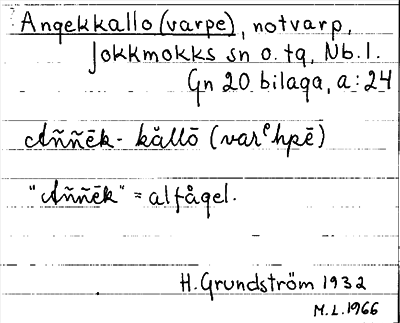 Angekkallo (varpe), notvarp,
Jokkmokks sn o. tg, Nb. l.
Gn 20 bilaga, a:24
Aññēk- kållō (varᵉhpē)
"Aññēk" = alfågel.
H. Grundström 1932
M.L. 1966